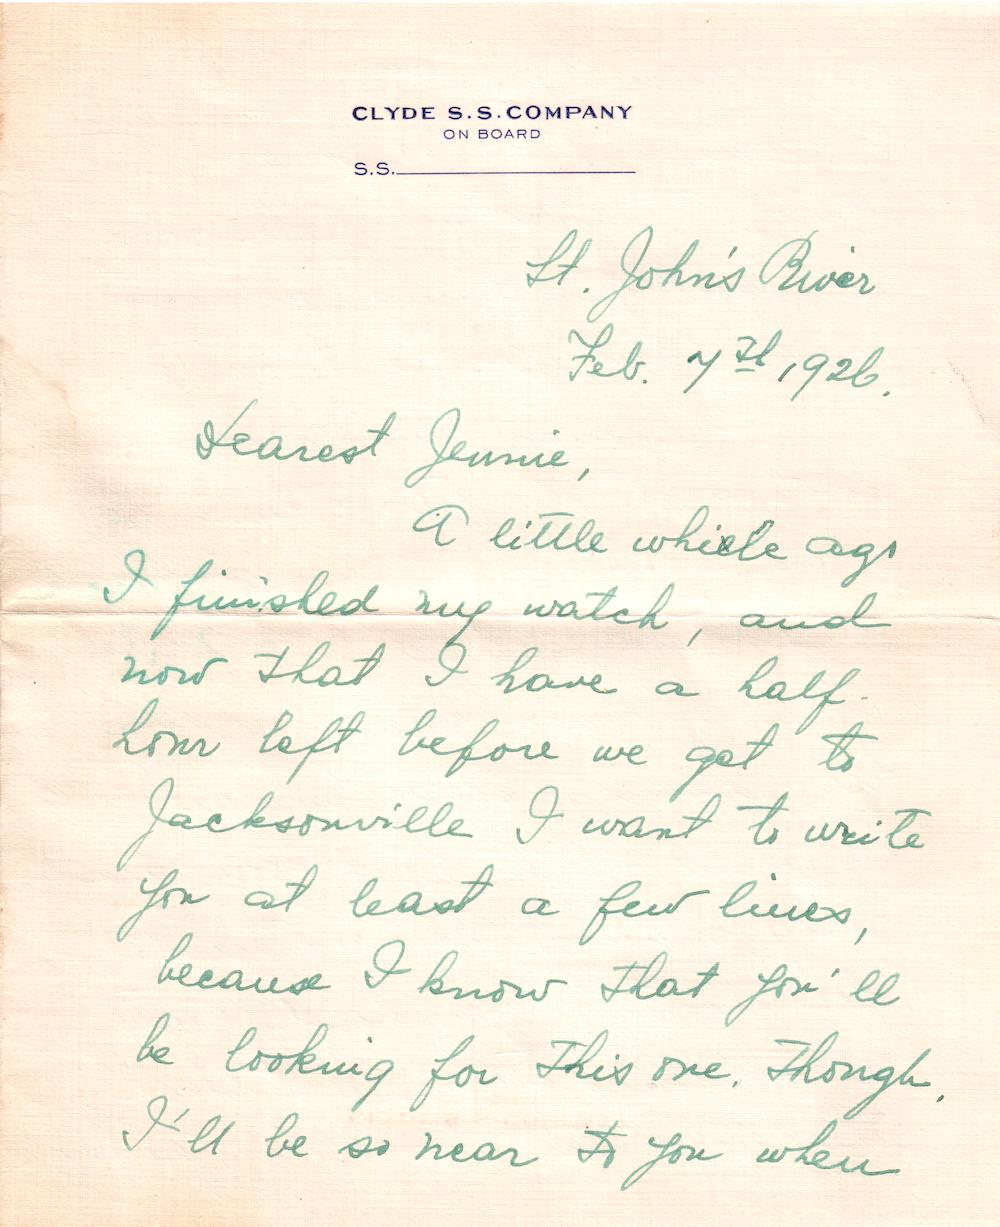 CLYDE S.S. COMPANY
ON BOARD
S.S.
St. John's River
Feb. 7th, 1926.
Dearest Jennie,
A little while ago
I finished my watch, and
now that I have a half-
hour left before we get to
Jacksonville I want to write
you at least a few lines,
because I know that you'll
be looking for this one. Though,
I'll be so near to you when